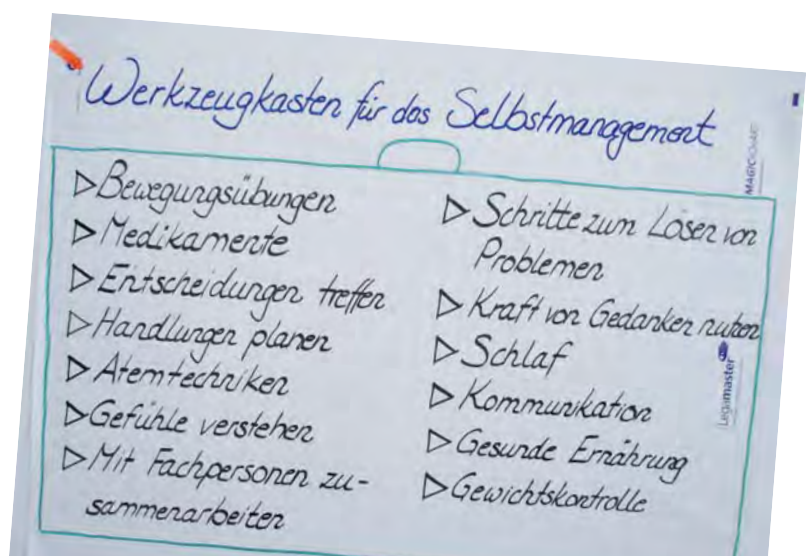 Werkzeugkasten für das Selbstmanagement
▷ Bewegungsübungen
▷ Medikamente
▷ Entscheidungen treffen
▷ Handlungen planen
▷ Atemtechniken
▷ Gefühle verstehen
▷ Mit Fachpersonen zu-
sammenarbeiten
▷ Schritte zum Lösen von
Problemen
▷ Kraft von Gedanken nutzen
▷ Schlaf
▷ Kommunikation
▷ Gesunde Ernährung
▷ Gewichtskontrolle
Legamaster